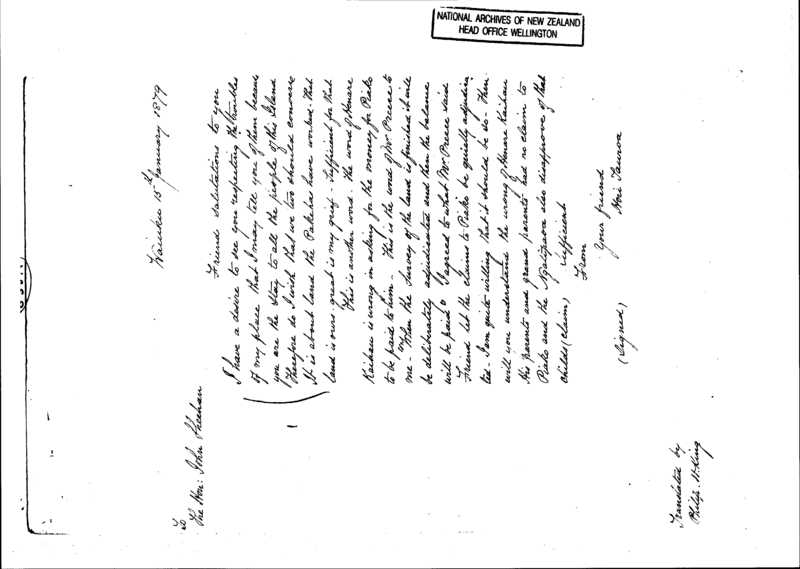 NATIONAL ARCHIVES OF NEW ZEALAND
HEAD OFFICE WELLINGTON
Waiuku 15th January 1879
To
The Hon: John Sheehan
Friend salutations to you
I have a desire to see you respecting the troubles
of my place that I may tell you of them because
you are the stay to all the people of this Island
Therefore do I wish that we two should converse
It is about land the Pakehas have worked. That
land is ours. great is my grief. Sufficient for that
This is another word. The word of Honare
Kaihau is wrong in asking for the money for Piako
to be paid to him. This is the word of Mr Preece to
me. When the survey of the land is finished it will
be deliberately adjudicated and then the balance
will be paid. I agreed to what Mr Preece said
Friend let the claims to Piako be quietly adjudica
ted. I am quite willing that it should be so. Then
will you understand the wrong of Honare Kaihau
His parents and grand parents had no claim to
Piako and the also disapprove of that
childs (claim) Sufficient
From
Your friend
(Signed) Hori Tauroa
Translated by
Philip